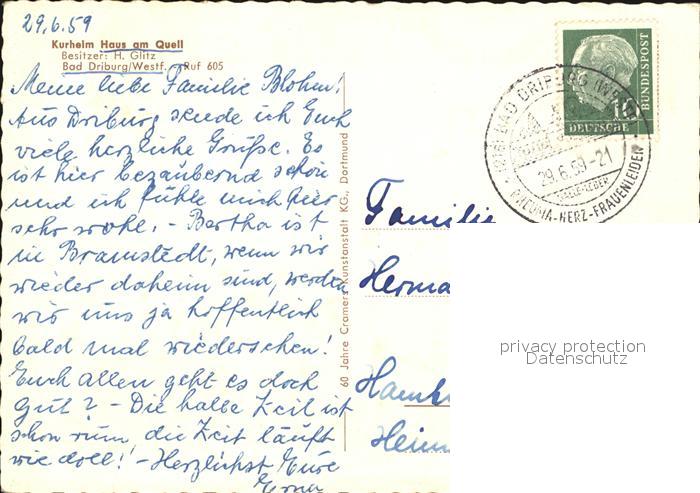 29.6.59
Kurheim Haus am Quell
Besitzer: H. Glitz
Bad Driburg/Westf. - Ruf 605
Meine liebe Familie Blohm!
Aus Driburg sende ich Euch
viele herzliche Grüße. Es
ist hier bezaubernd schön
und ich fühle mich hier
sehr wohl. - Bertha ist
in Bramstedt, wenn wir
wieder daheim sind, werden
wir uns ja hoffentlich
bald mal wiedersehen!
Euch allen geht es doch
gut? - Die halbe Zeit ist
schon rum, die Zeit läuft
wie doll! - Herzlichst Eure
Erna
60 Jahre Cramers Kunstanstalt KG., Dortmund
DEUTSCHE
BUNDESPOST
10
BAD DRIBURG (WESTF)
29.6.59-21
RHEUMA-HERZ-FRAUENLEIDEN
Familie
Herma
Hamb
Heim
privacy protection
Datenschutz